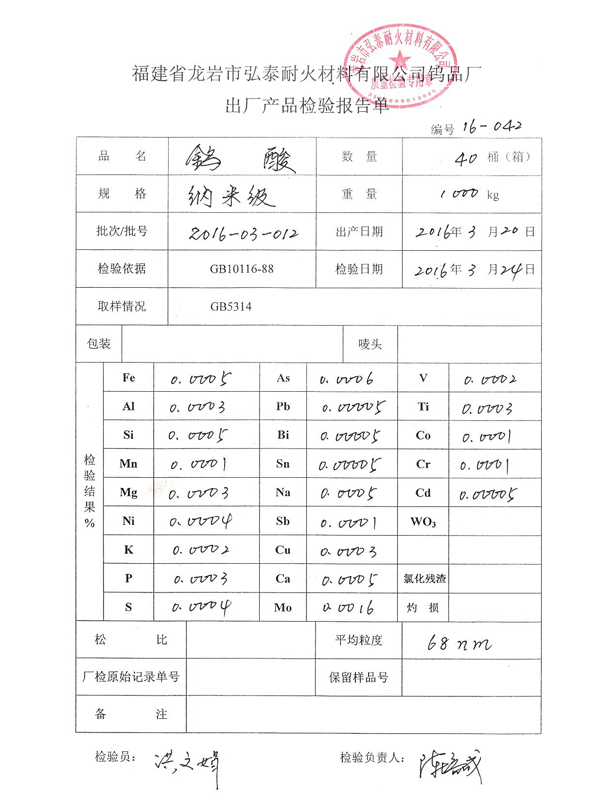 福建省龙岩市弘泰耐火材料有限公司钨品厂
出厂产品检验报告单
编号 16-042
品名 鎢酸 数量 40 桶（箱）
规格 纳米级 重量 1000 kg
批次/批号 2016-03-012 出产日期 2016年3月20日
检验依据 GB10116-88 检验日期 2016年3月24日
取样情况 GB5314
包装 唛头
检验结果%
Fe 0.0005 As 0.0006 V 0.0002
Al 0.0003 Pb 0.00005 Ti 0.0003
Si 0.0005 Bi 0.00005 Co 0.0001
Mn 0.0001 Sn 0.00005 Cr 0.0001
Mg 0.0003 Na 0.0005 Cd 0.00005
Ni 0.0004 Sb 0.0001 WO₃
K 0.0002 Cu 0.0003
P 0.0003 Ca 0.0005 氯化残渣
S 0.0004 Mo 0.0016 灼损
松比 平均粒度 68nm
厂检原始记录单号 保留样品号
备注
检验员： 洪文 检验负责人： 陈
龙岩市弘泰耐火材料有限公司
质量检验专用章